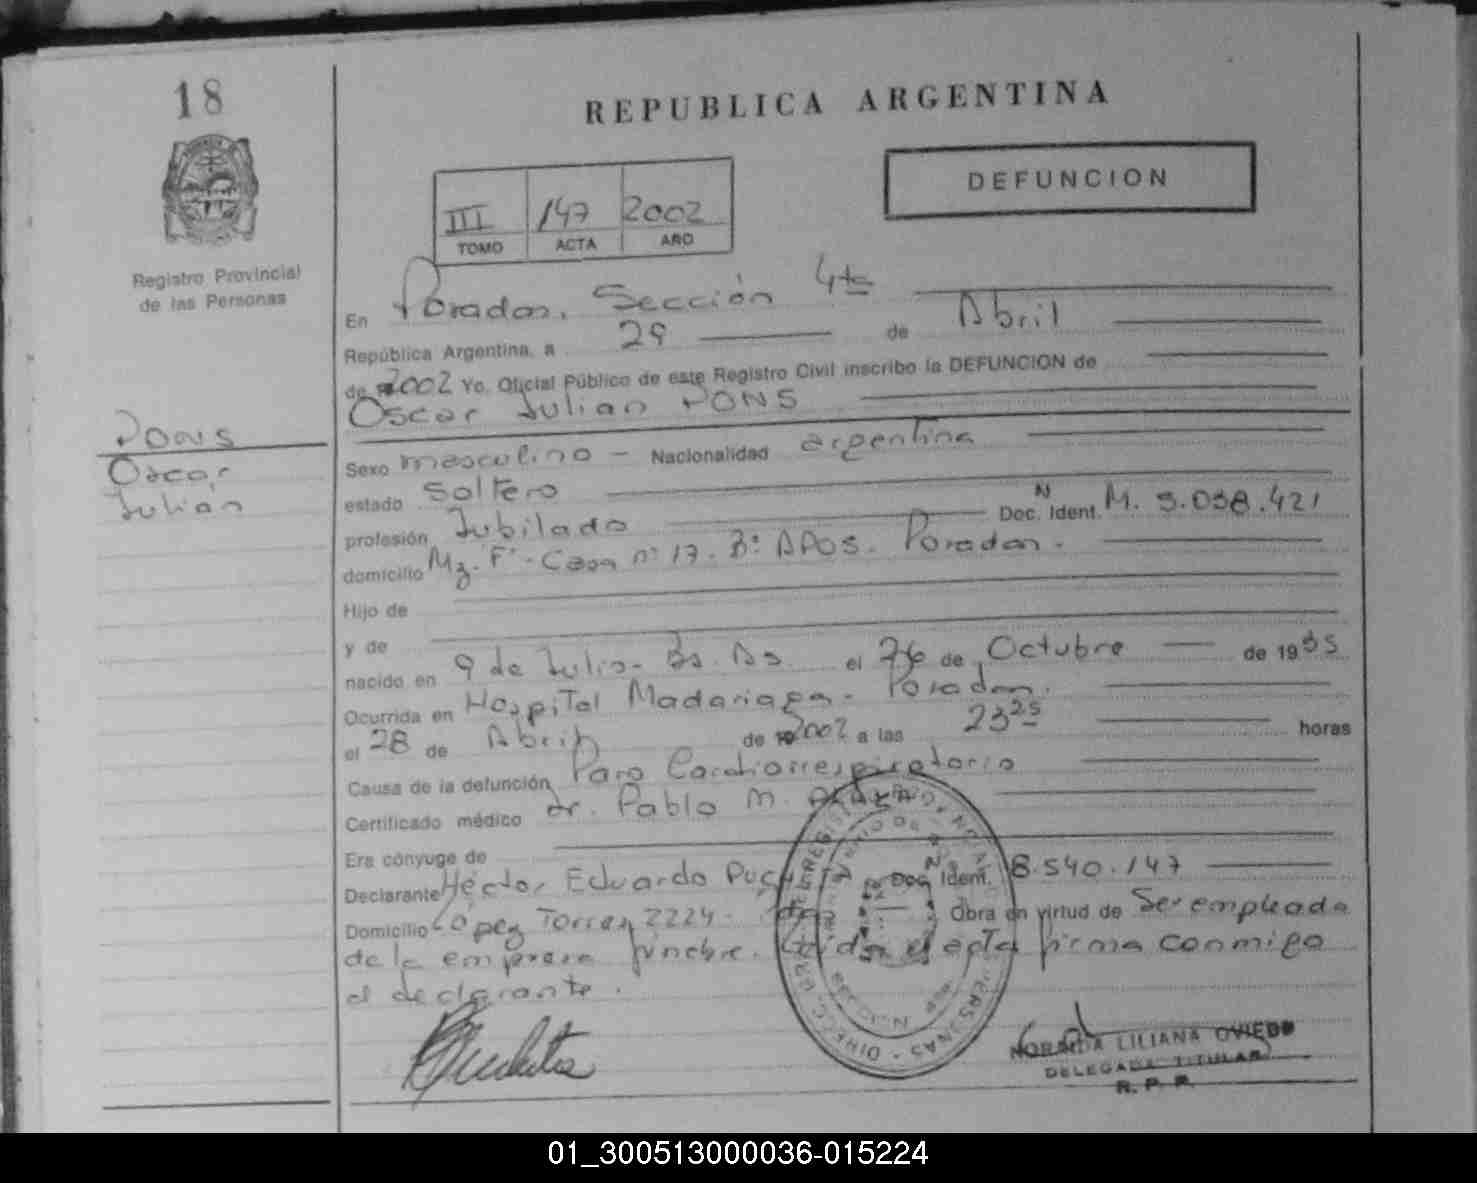 18
REPUBLICA ARGENTINA
DEFUNCION
III 147 2002
TOMO ACTA AÑO
Registro Provincial
de las Personas
En Posadas, Sección 4ta
República Argentina, a 29 de Abril
de 2002 Yo, Oficial Público de este Registro Civil inscribo la DEFUNCION de
Oscar Julian PONS
PONS
Oscar
Julián
Sexo masculino - Nacionalidad argentina
estado Soltero
profesión Jubilado Doc. N Ident. M. 5.038.421
domicilio Mz. F - Casa nº 17. Bº APOS. Posadas.
Hijo de
y de
nacido en 9 de Julio - Bs. As. el 26 de Octubre de 19
Ocurrida en Hospital Madariaga - Posadas.
el 28 de Abril de 2002 a las 23 25 horas
Causa de la defunción Paro Cardiorrespiratorio
Certificado médico Dr. Pablo M.
Era cónyuge de
Declarante Héctor Eduardo Doc. N Ident. 8.540.147
Domicilio López Torres 2224 - Obra en virtud de Ser empleado
de la empresa fúnebre. Leída el acta firma conmigo
el declarante.
NORMA LILIANA OVIEDO
DELEGADA TITULAR
R. P. P.
01_300513000036-015224